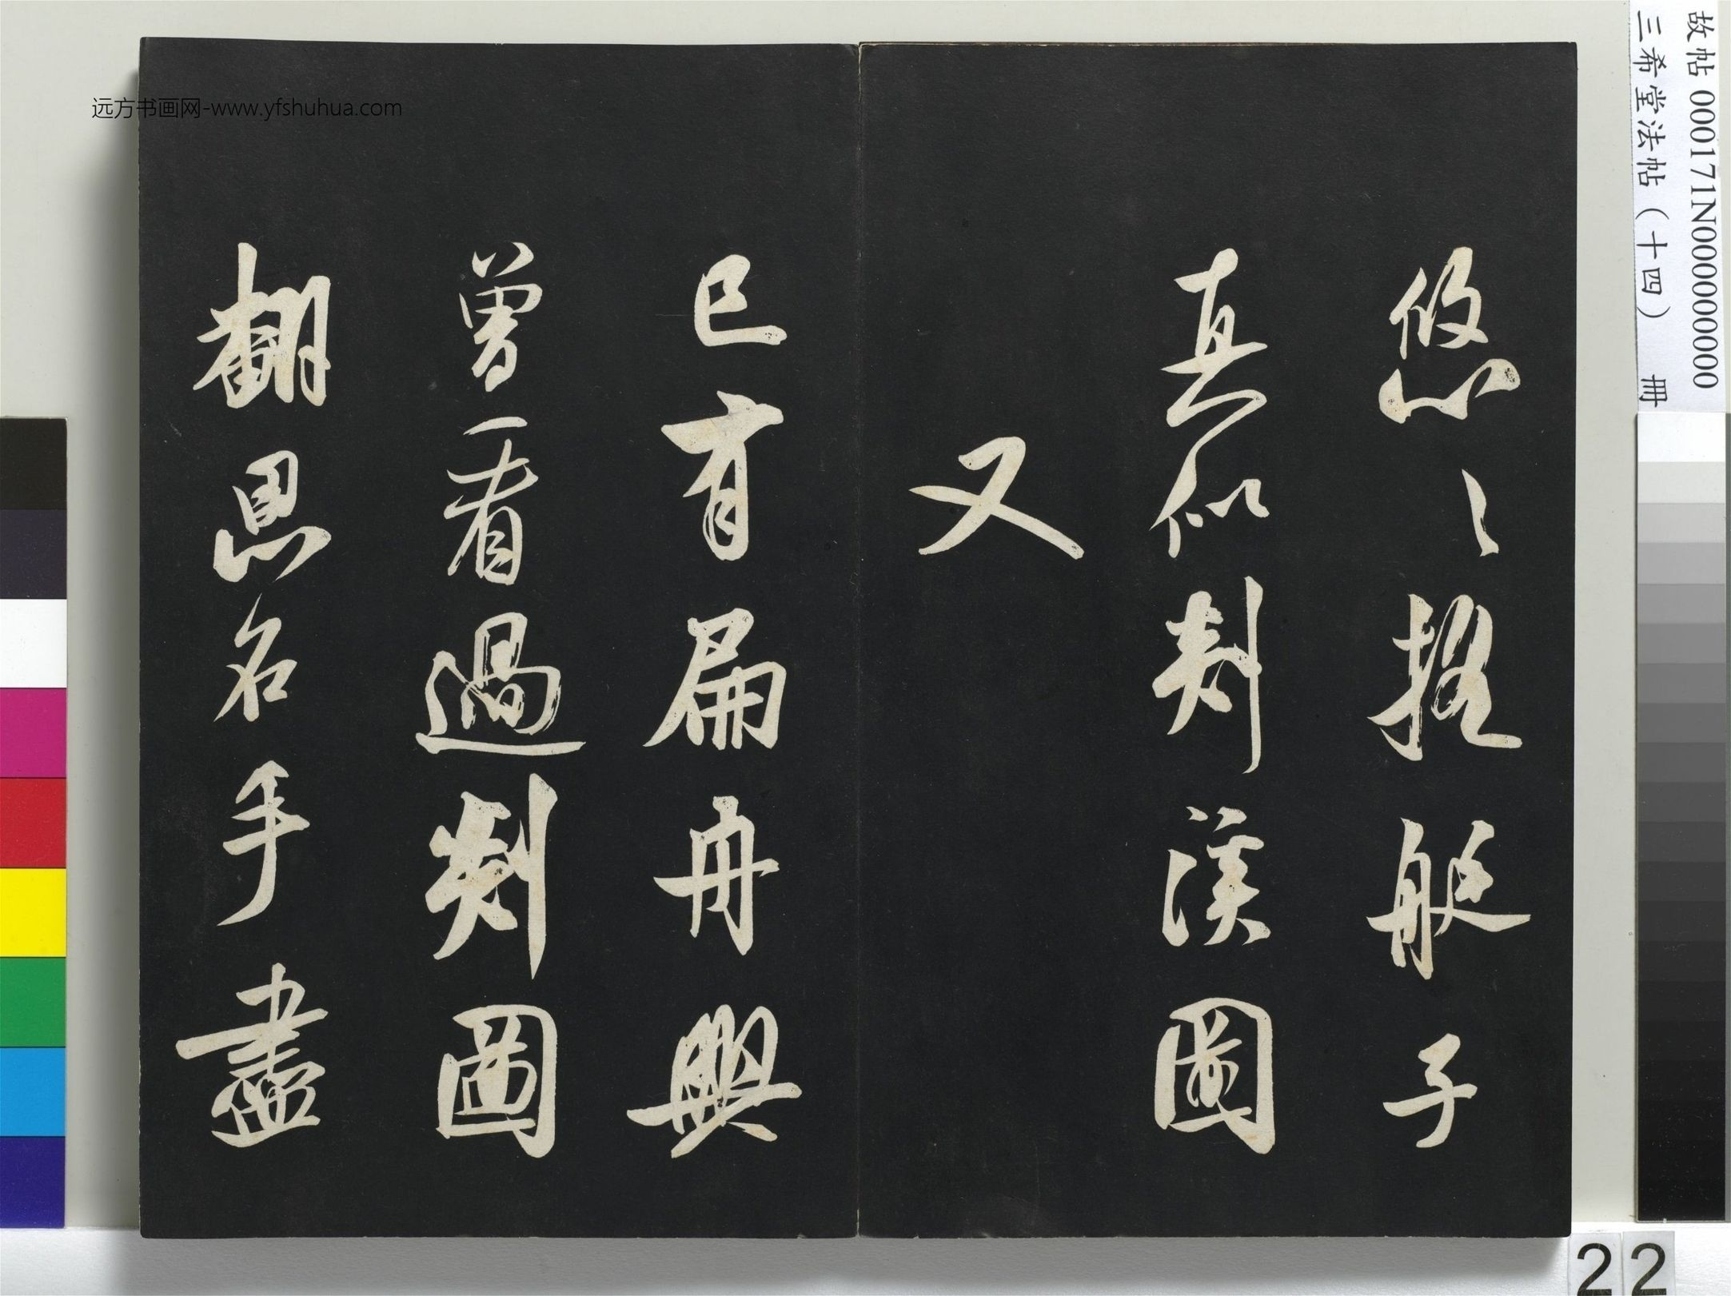 悠〻搖艇子
真似剡溪圖
又
已有扁舟興
曾看過剡圖
翻思名手盡
远方书画网-www.yfshuhua.com
故帖 000171N000000000
三希堂法帖（十四） 冊
22